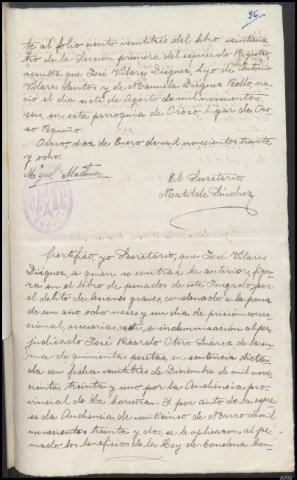 96
te al folio ciento veintitrés del libro veintena
rio de la Sección primera del expresado Registro,
resulta que José Vilares Dieguez, hijo de Antonio
Vilares Santos y de Manuela Dieguez Rollo, na
ció el día siete de Agosto de mil novecientos
seis, en esta parroquia de Oroso, lugar de Oro
so Pequeño.
Oroso, diez de Enero de mil novecientos treinta
y ocho.
Miguel Martinez
El Secretario,
Matilde Sánchez
Certifico, yo Secretario, que José Vilares
Dieguez, a quien se contrae la anterior, figu
ra en el libro de penados de este Juzgado por
el delito de lesiones graves, condenado a la pena
de un año, ocho meses y un día de prisión corre
ccional, accesorias, e indemnización al per
judicado José Ricardo Otero Suárez de la su
ma de quinientas pesetas, en sentencia dicta
da con fecha veintitrés de Diciembre de mil nove
cientos treinta y uno por la Audiencia pro
vincial de La Coruña. Y por auto de la expre
sada Audiencia de veinticinco de Marzo de mil
novecientos treinta y dos, se le aplicaron al pe
nado los beneficios de la Ley de Condena con
ARG